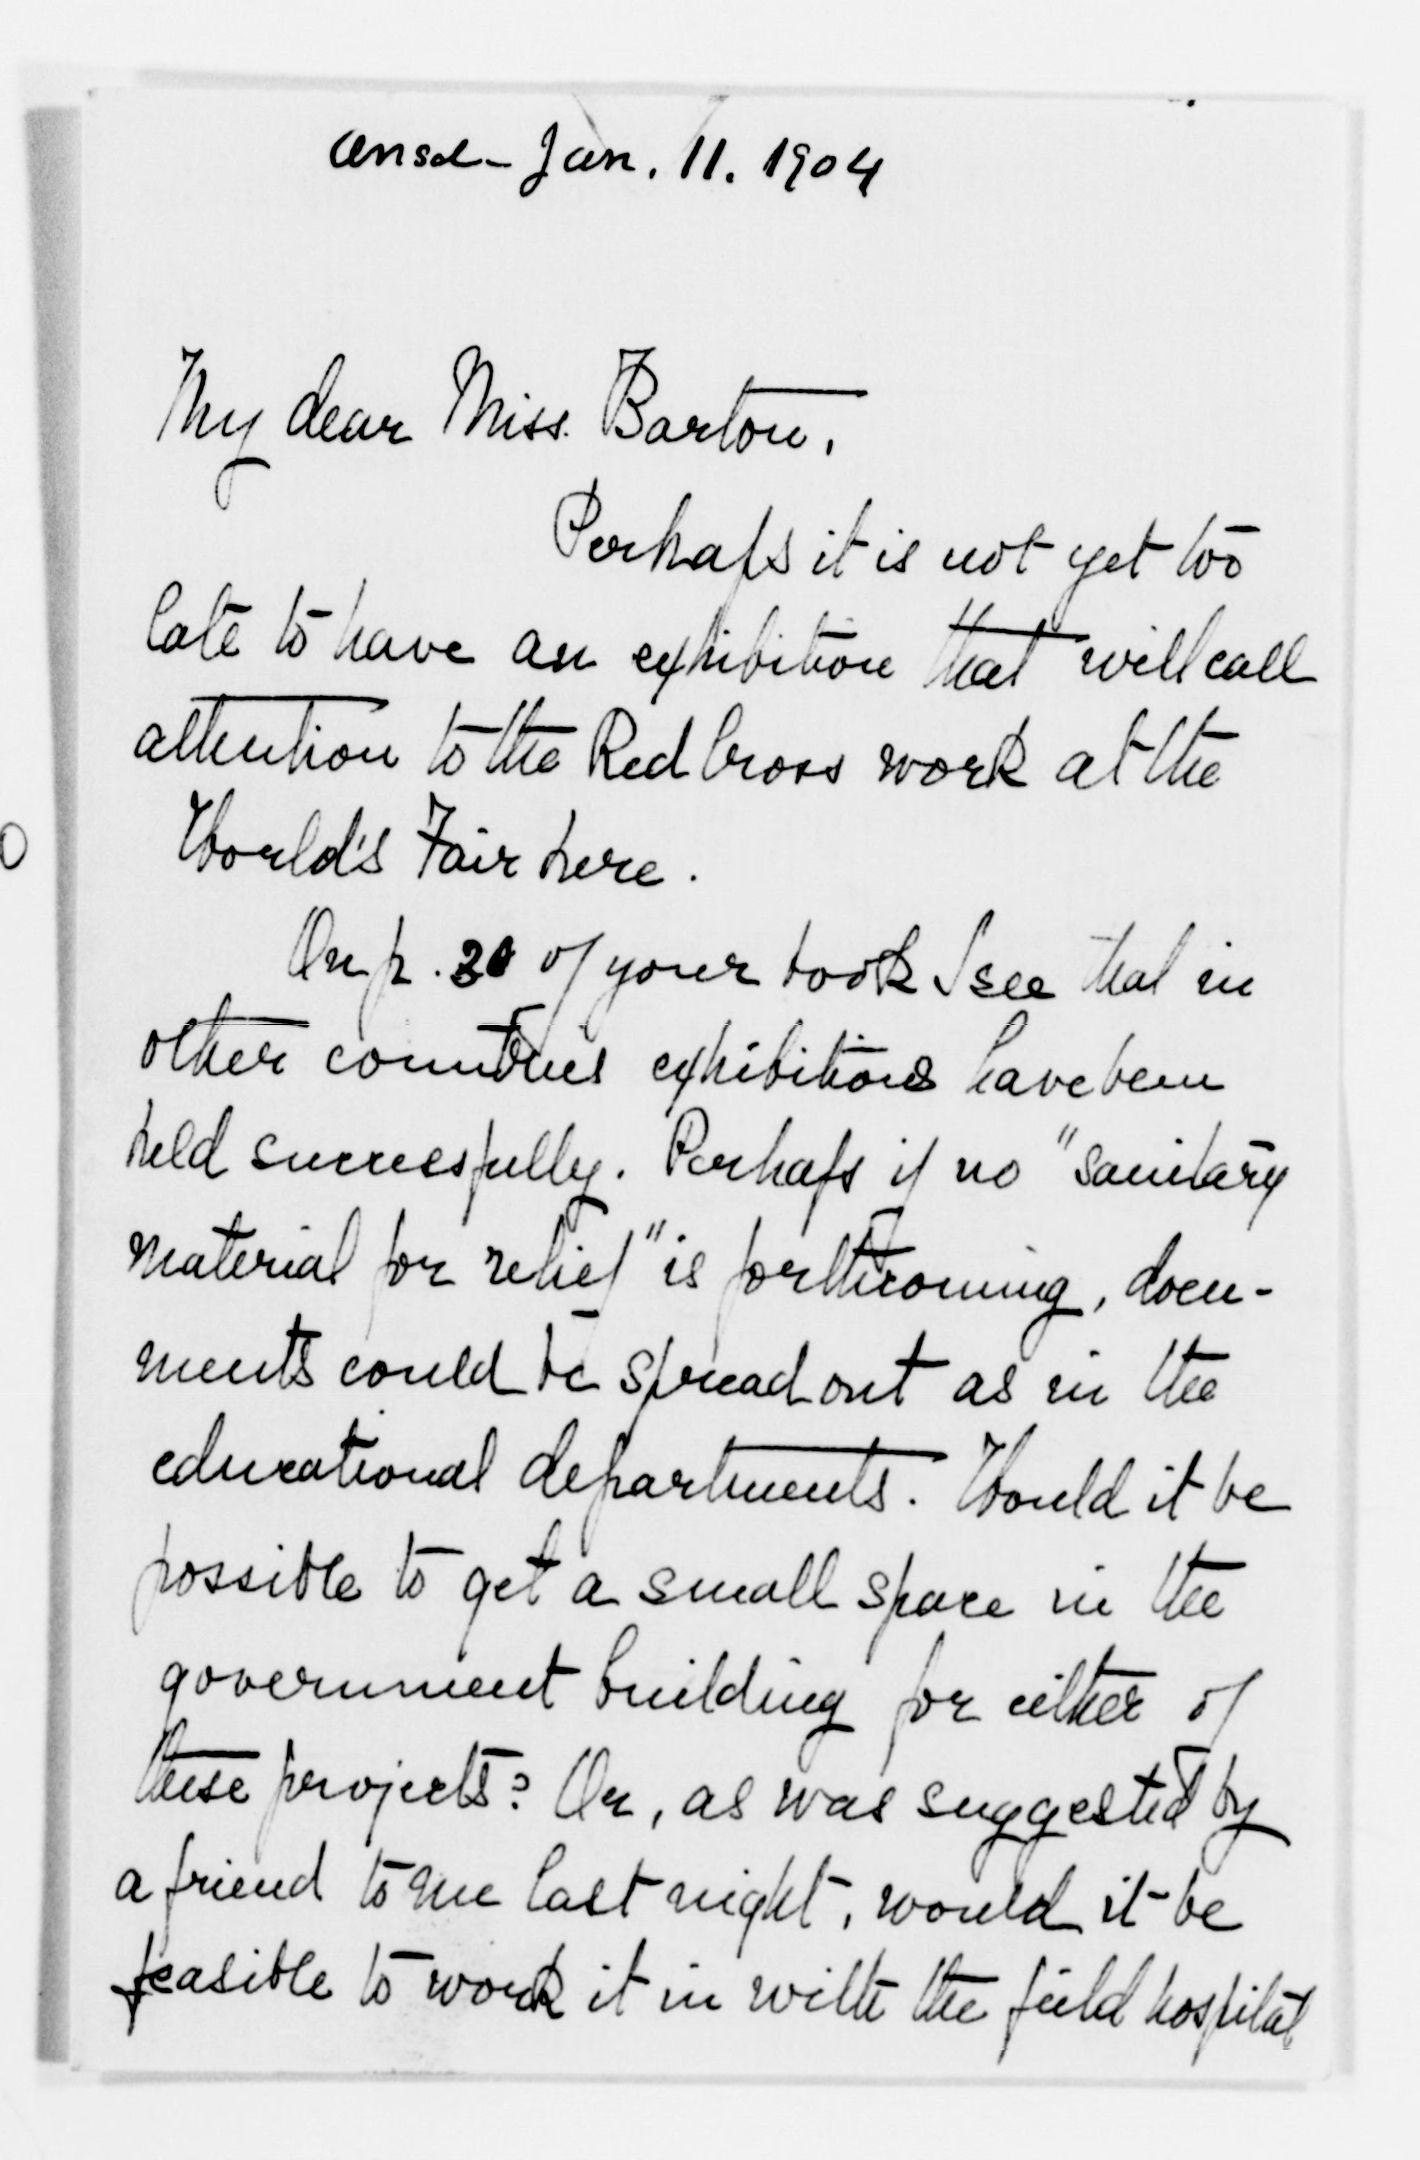 ansd- Jan. 11. 1904
My dear Miss Barton,
Perhaps it is not yet too
late to have an exhibition that will call
attention to the Red Cross work at the
World's Fair here.
On p. of your book I see that in
other countries exhibitions have been
held successfully. Perhaps if no "sanitary
material for relief" is forthcoming, docu-
ments could be spread out as in the
educational departments. Would it be
possible to get a small space in the
government building for either of
these projects? Or, as was suggested by
a friend to me last night, would it be
feasible to work it in with the field hospital